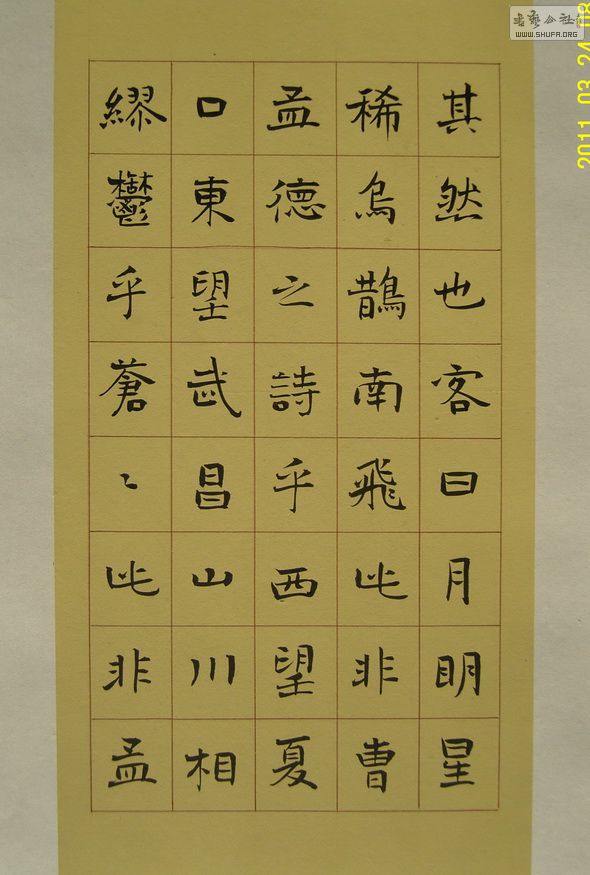 其然也客曰月明星
稀烏鵲南飛此非曹
孟德之詩乎西望夏
口東望武昌山川相
繆鬱乎蒼〻此非孟
书艺公社
WWW.SHUFA.ORG
2011 03 24 08